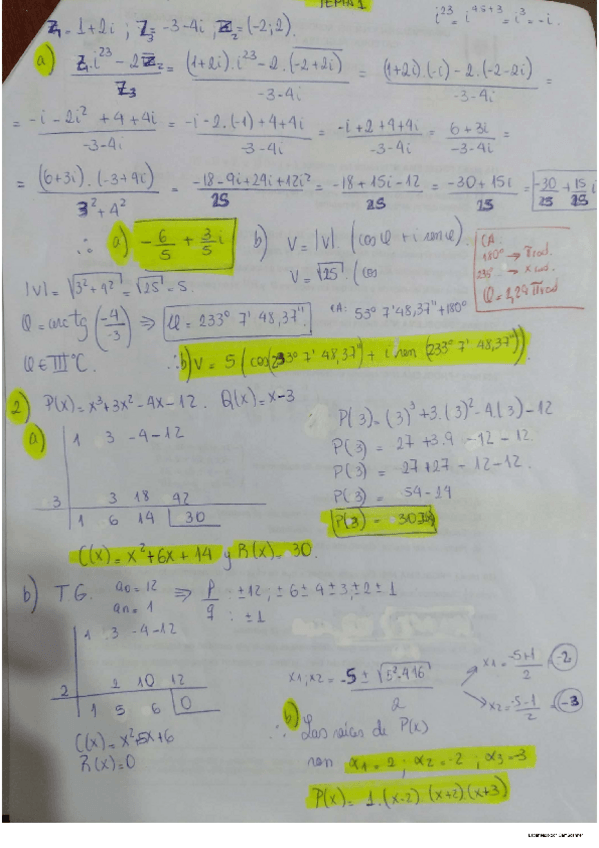 TEMA 1
i²³ = i^(4.5+3) = i³ = -i.
Z₁ = 1+2i ; Z₃ = -3-4i ; Z₂ = (-2;2).
a) (Z₁.i²³ - 2Z̅₂)/Z₃ = ((1+2i).i²³ - 2.(‾-2+2i‾))/(-3-4i) = ((1+2i).(-i) - 2.(-2-2i))/(-3-4i) =
= (-i-2i²+4+4i)/(-3-4i) = (-i-2.(-1)+4+4i)/(-3-4i) = (-i+2+4+4i)/(-3-4i) = (6+3i)/(-3-4i) =
= ((6+3i).(-3+4i))/(3²+4²) = (-18-9i+24i+12i²)/25 = (-18+15i-12)/25 = (-30+15i)/25 = -30/25 + 15/25 i
∴ a) -6/5 + 3/5 i
b) V = |V|.(cos φ + i sen φ).
V = √25.(cos
CA:
180° → π rad.
235° → x rad.
|V| = √(3²+4²) = √25 = 5.
φ = arc tg (-4/-3) ⇒ φ = 233° 7' 48,37''
CA: 53° 7' 48,37'' + 180°
φ ∈ III°C.
∴ b) V = 5 (cos(233° 7' 48,37'') + i sen (233° 7' 48,37''))
2) P(x) = x³+3x²-4x-12. Q(x) = x-3
a)
1 3 -4 -12
3 3 18 42
1 6 14 30
P(3) = (3)³+3.(3)²-4.(3)-12
P(3) = 27+3.9-12-12
P(3) = 27+27-12-12.
P(3) = 54-24
P(3) = 30
C(x) = x²+6x+14 y R(x) = 30.
b) T G. a₀ = 12
aₙ = 1
⇒ p/q : ±12; ±6 ±4 ±3; ±2 ±1
: ±1
1 3 -4 -12
2 2 10 12
1 5 6 0
C(x) = x²+5x+6
R(x) = 0
x₁;x₂ = (-5 ± √(5²-4.1.6))/2
x₁ = (-5+1)/2 = -2
x₂ = (-5-1)/2 = -3
b)
∴ Las raíces de P(x)
son α₁ = 2 ; α₂ = -2 ; α₃ = -3
P(x) = 1.(x-2).(x+2).(x+3)